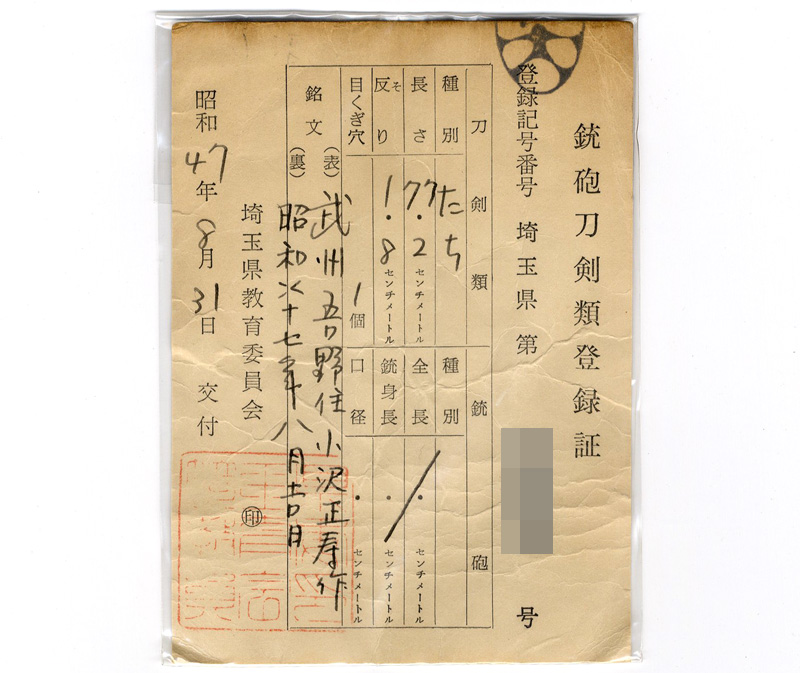 銃砲刀剣類登録証
登録記号番号 埼玉県 第 号
刀剣類 銃砲
種別 たち 種別
長さ 77.2 センチメートル 全長 . センチメートル
反り そ 1.8 センチメートル 銃身長 . センチメートル
目くぎ穴 1個 口径 . センチメートル
銘文 (表) 武州吾野住小沢正寿作
(裏) 昭和四十七年八月吉日
埼玉県教育委員会 ㊞
昭和47年8月31日 交付